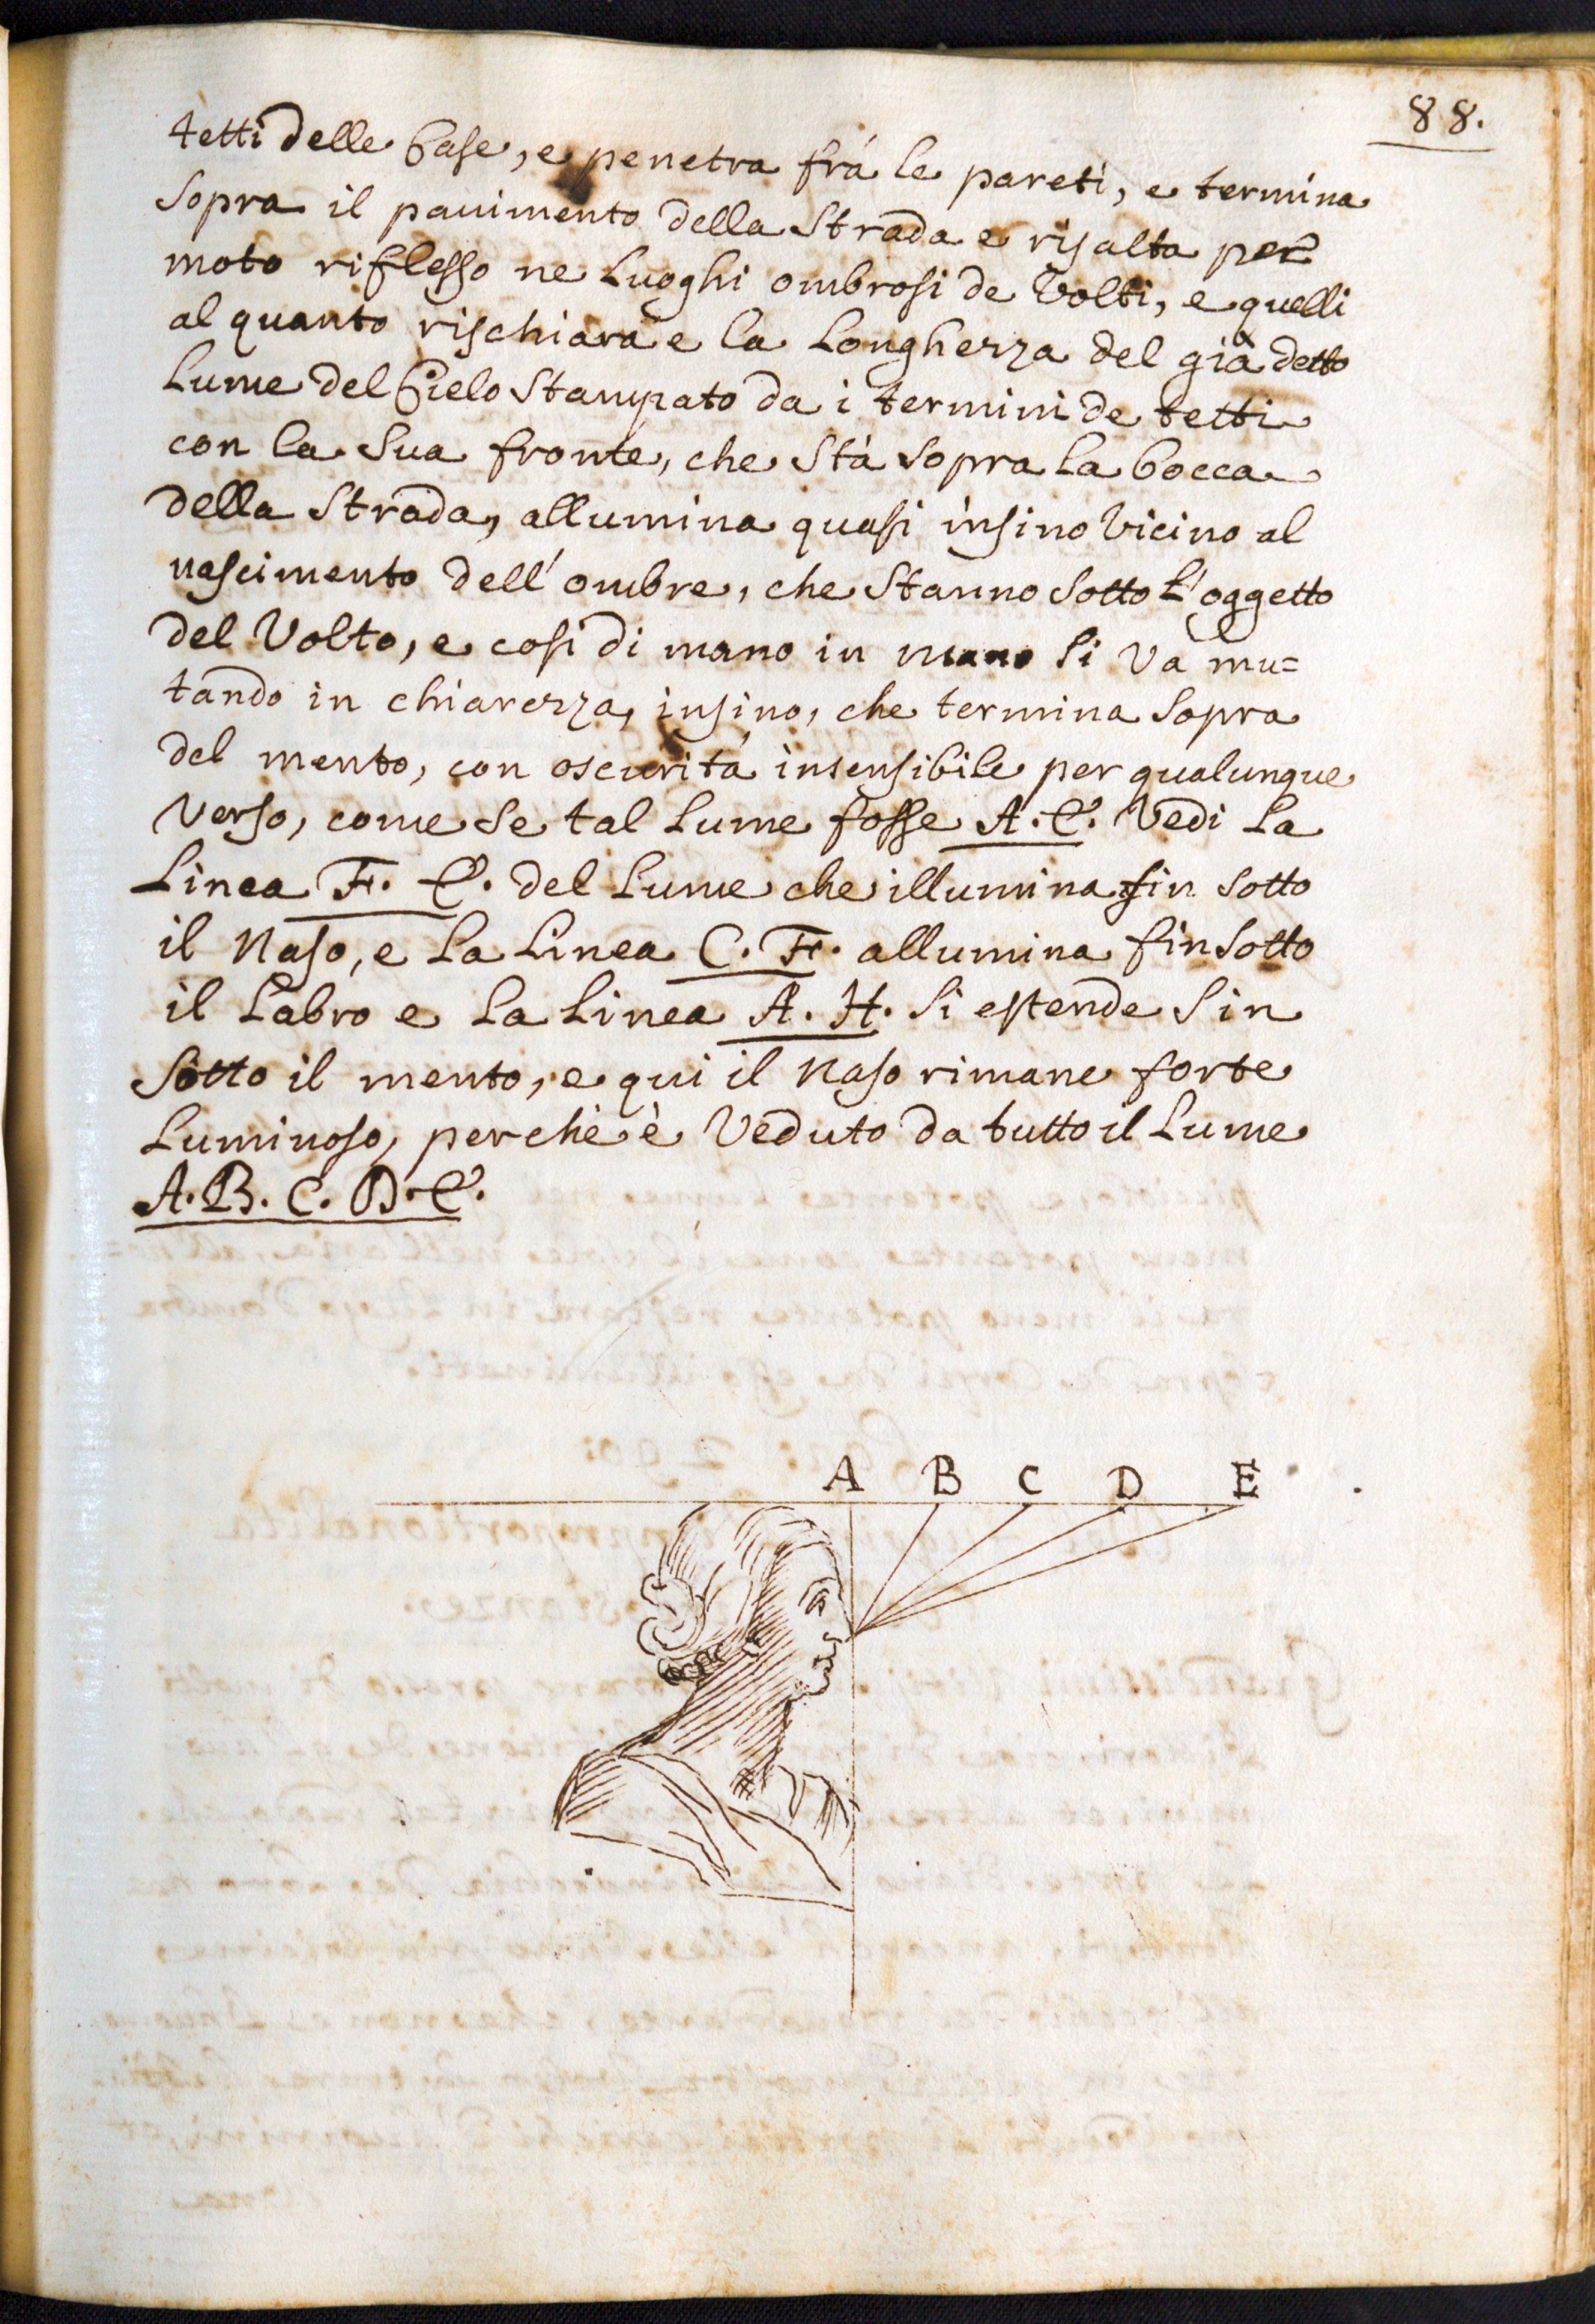 88.
tetti delle Case, e penetra frà le pareti, e termina
sopra il pauimento della Strada e risalta per
moto riflesso ne Luoghi ombrosi de Volti, e quelli
al quanto rischiara e la Longhezza del già detto
Lume del Cielo Stampato da i termini de tetti
con la Sua fronte, che Stà sopra la bocca
della Strada, allumina quasi insino Vicino al
nascimento dell' ombre, che Stanno Sotto L'oggetto
del Volto, e cosi di mano in mano si Và mu=
tando in chiarezza, insino, che termina Sopra
del mento, con oscurità insensibile per qualunque
Verso, come se tal Lume fosse A. E. Vedi La
Linea F. E. del Lume che illumina fin Sotto
il Naso, e La Linea C. F. allumina fin Sotto
il Labro e La Linea A. H. Si estende Sin
Sotto il mento, e qui il Naso rimane forte
Luminoso, perchè è Veduto da tutto il Lume
A. B. C. D. E.
A B C D E